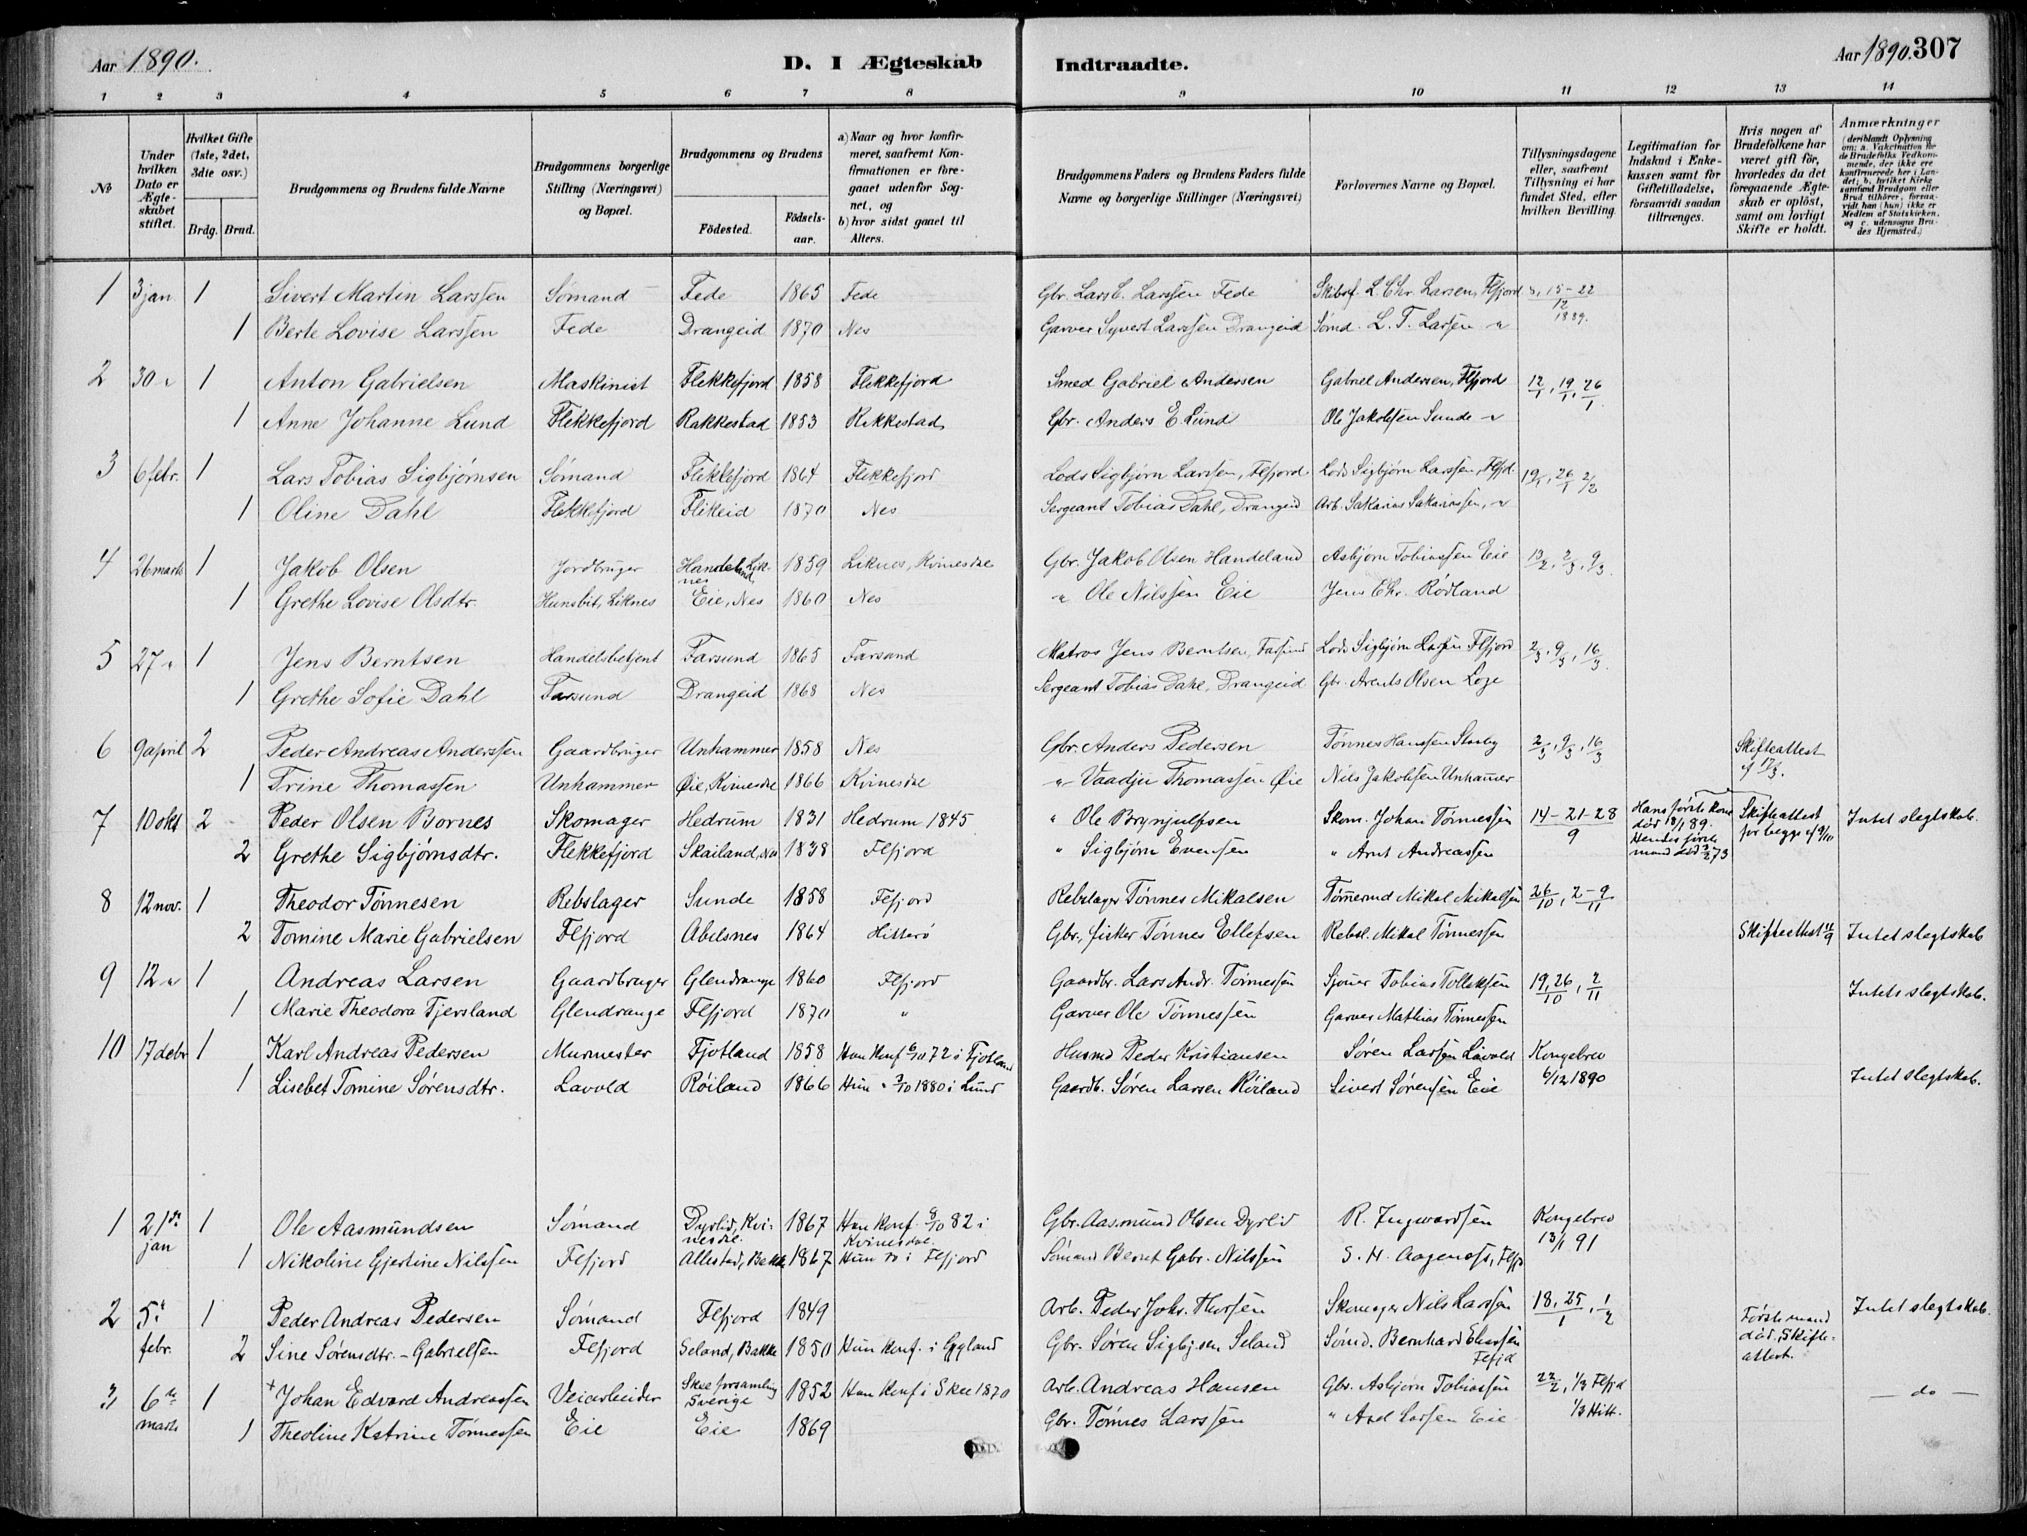 Aar 1890.
D. I Ægteskab
Indtraadte.
Aar 1890. 307
1 2 3 4 5 6 7 8 9 10 11 12 13 14
No
Under hvilken Dato er Ægteskabet stiftet.
Hvilket Gifte (1ste, 2det, 3die osv.)
Brdg. Brud.
Brudgommens og Brudens fulde Navne
Brudgommens borgerlige Stilling (Næringsvei) og Bopæl.
Brudgommens og Brudens
Födested.
Födselsaar.
a) Naar og hvor konfirmeret, saafremt Konfirmationen er foregaaet udenfor Sognet, og
b) hvor sidst gaaet til Alters.
Brudgommens Faders og Brudens Faders fulde Navne og borgerlige Stillinger (Næringsvei)
Forlovernes Navne og Bopæl.
Tillysningsdagene eller, saafremt Tillysning ei har fundet Sted, efter hvilken Bevilling.
Legitimation for Indskud i Enkekassen samt for Giftetilladelse, forsaavidt saadan tiltrænges.
Hvis nogen af Brudefolkene har været gift før, hvorledes da det foregaaende Ægteskab er oplöst, samt om lovligt Skifte er holdt.
Anmærkninger (deriblandt Oplysning om: a. Vakcination for de Brudefolks Vedkommende, der ikke ere konfirmerede her i Landet; b. hvilket Kirkesamfund Brudgom eller Brud tilhörer, forsaavidt han (hun) ikke er Medlem af Statskirken, og c. udensogns Brudes Hjemsted.)
1 3 jan 1 Sivert Martin Larssen Sømand Fede 1865 Fede Gbr. Lars E. Larssen Fede Skibsf. L. Chr. Larsen, Flfjord 8, 15-22/12 1889.
1 Berte Lovise Larssen Fede Drangeid 1870 Nes Garver Syvert Larssen Drangeid Sømd. L. T. Larsen "
2 30 " 1 Anton Gabrielsen Maskinist Flekkefjord 1858 Flekkefjord Smed Gabriel Andersen Gabriel Andersen, Flfjord 12/1, 19/1, 26/1
1 Anne Johanne Lund Flekkefjord Rakkestad 1853 Rakkestad Gbr. Anders E. Lund Ole Jakobsen Sunde "
3 6 febr. 1 Lars Tobias Sigbjørnsen Sømand Flekkefjord 1864 Flekkefjord Lods Sigbjørn Larssen, Flfjord Lods Sigbjørn Larssen, Flfjd. 19/1, 26/1 2/2
1 Oline Dahl Flekkefjord Flikeid 1870 Nes Sergeant Tobias Dahl, Drangeid Arb. Sakarias Sakariassen, "
4 26 marts 1 Jakob Olsen Jordbruger Handeland, Liknes 1859 Liknes, Kvinesdal Gbr. Jakob Olsen Handeland Asbjørn Tobiassen Eie 13/2, 2/3, 9/3.
1 Grethe Lovise Olsdtr. Hunsbit, Liknes Eie, Nes 1860 Nes " Ole Nilssen Eie Jens Chr. Rødland
5 27 " 1 Jens Berntsen Handelsbetjent Farsund 1865 Farsund Matros Jens Berntsen, Farsund Lods Sigbjørn Larsen Flfjord 2/3, 9/3, 16/3.
1 Grethe Sofie Dahl Farsund Drangeid 1868 Nes Sergeant Tobias Dahl, Drangeid Gbr. Arents Olsen Loge
6 9 april 2 Peder Andreas Anderssen Gaardbruger Unhammer 1858 Nes Gbr. Anders Pedersen Tønnes Hanssen 2/3, 9/3, 16/3 Skifteattest af 17/3.
1 Trine Thomassen Unhammer Øie, Kvinesdal 1866 Kvinesdal " Vaadju Thomassen Øie Nils Jakobsen Unhamer
7 10 okt 2 Peder Olsen Bornes Skomager Hedrum 1831 Hedrum 1845 " Ole Brynjulfsen Skom. Johan Tønnessen 14-21-28/9 Hans første kone död 18/1 89. Skifteattest for begge af 9/10 Intet slegtskab.
2 Grethe Sigbjørnsdtr. Flekkefjord Skailand, Nes 1838 Flfjord " Sigbjørn Evensen " Arnt Andreassen Hendes første mand död 3/2 73
8 12 nov. 1 Theodor Tønnesen Rebslager Sunde 1858 Flfjord Rebslager Tønnes Mikalsen Tømmermd Mikal Mikalsen 26/10, 2-9/11
2 Tomine Marie Gabrielsen Flfjord Abelsnes 1864 Hitterø Gbr., fisker Tønnes Ellefsen Rebsl. Mikal Tønnessen Skifteattest 11/9 Intet slegtskab
9 12 " 1 Andreas Larsen Gaardbruger Glendrange 1860 Flfjord Gaardbr. Lars Andr. Tønnessen Tobias Tollaksen 19,26/10, 2/11 Intets slegtskab.
1 Marie Theodora Tjersland Glendrange Flfjord 1870 " Garver Ole Tønnessen Garver Mathias Tønnessen
10 17 debr 1 Karl Andreas Pedersen Murmester Fjotland 1858 Han konf 6/10 72 i Fjotland Husmd Peder Kristiansen Søren Larsen Lavold Kongebrev
1 Lisebet Tomine Sørensdtr. Lavold Røiland 1866 Hun " 3/10 1880 i Lund Gaardb. Søren Larsen Røiland Sivert Sørensen Eie 6/12 1890 Intet slegtskab.
1 21de jan 1 Ole Aasmundsen Sømand Dyrlid, Kvinesdal. 1867 Han konf. 8/10 82 i Kvinesdal. Gbr. Aasmund Olsen Dyrlid R. Ingwardsen Kongebrev
1 Nikoline Gjertine Nilssen Flfjord Allestad, Bakke 1867 Hun do i Flfjord Sømand Bernt Gabr. Nilssen S. H. Aagenæs, Flfj. 13/1 91
2 5te febr. 1 Peder Andreas Pedersen Sømand Flfjord 1849 Arb. Peder Johs. Thorsen Skomager Nils Larssen 18, 25/1, 1/2 Første mand död. Skifteattest. Intet slegtskab.
2 Sine Sørensdtr. - Gabrielsen Flfjord Seland, Bakke 1850 Hun konf. i Gyland Gbr. Søren Sigbjsen Seland Sømd. Bernhard Eliassen Flfjd
3 6te marts 1 + Johan Edvard Andreassen Veiarbeider Skee forsamling Sverige 1852 Han konf i Skee 1870 Arb. Andreas Hansen Gbr. Asbjørn Tobiassen 22/2, 1/3 Flfjd — do —
1 Theoline Katrine Tønnessen Eie Eie 1869 Gbr. Tønnes Larssen " Axel Larsen Eie 1/3 Hitt.